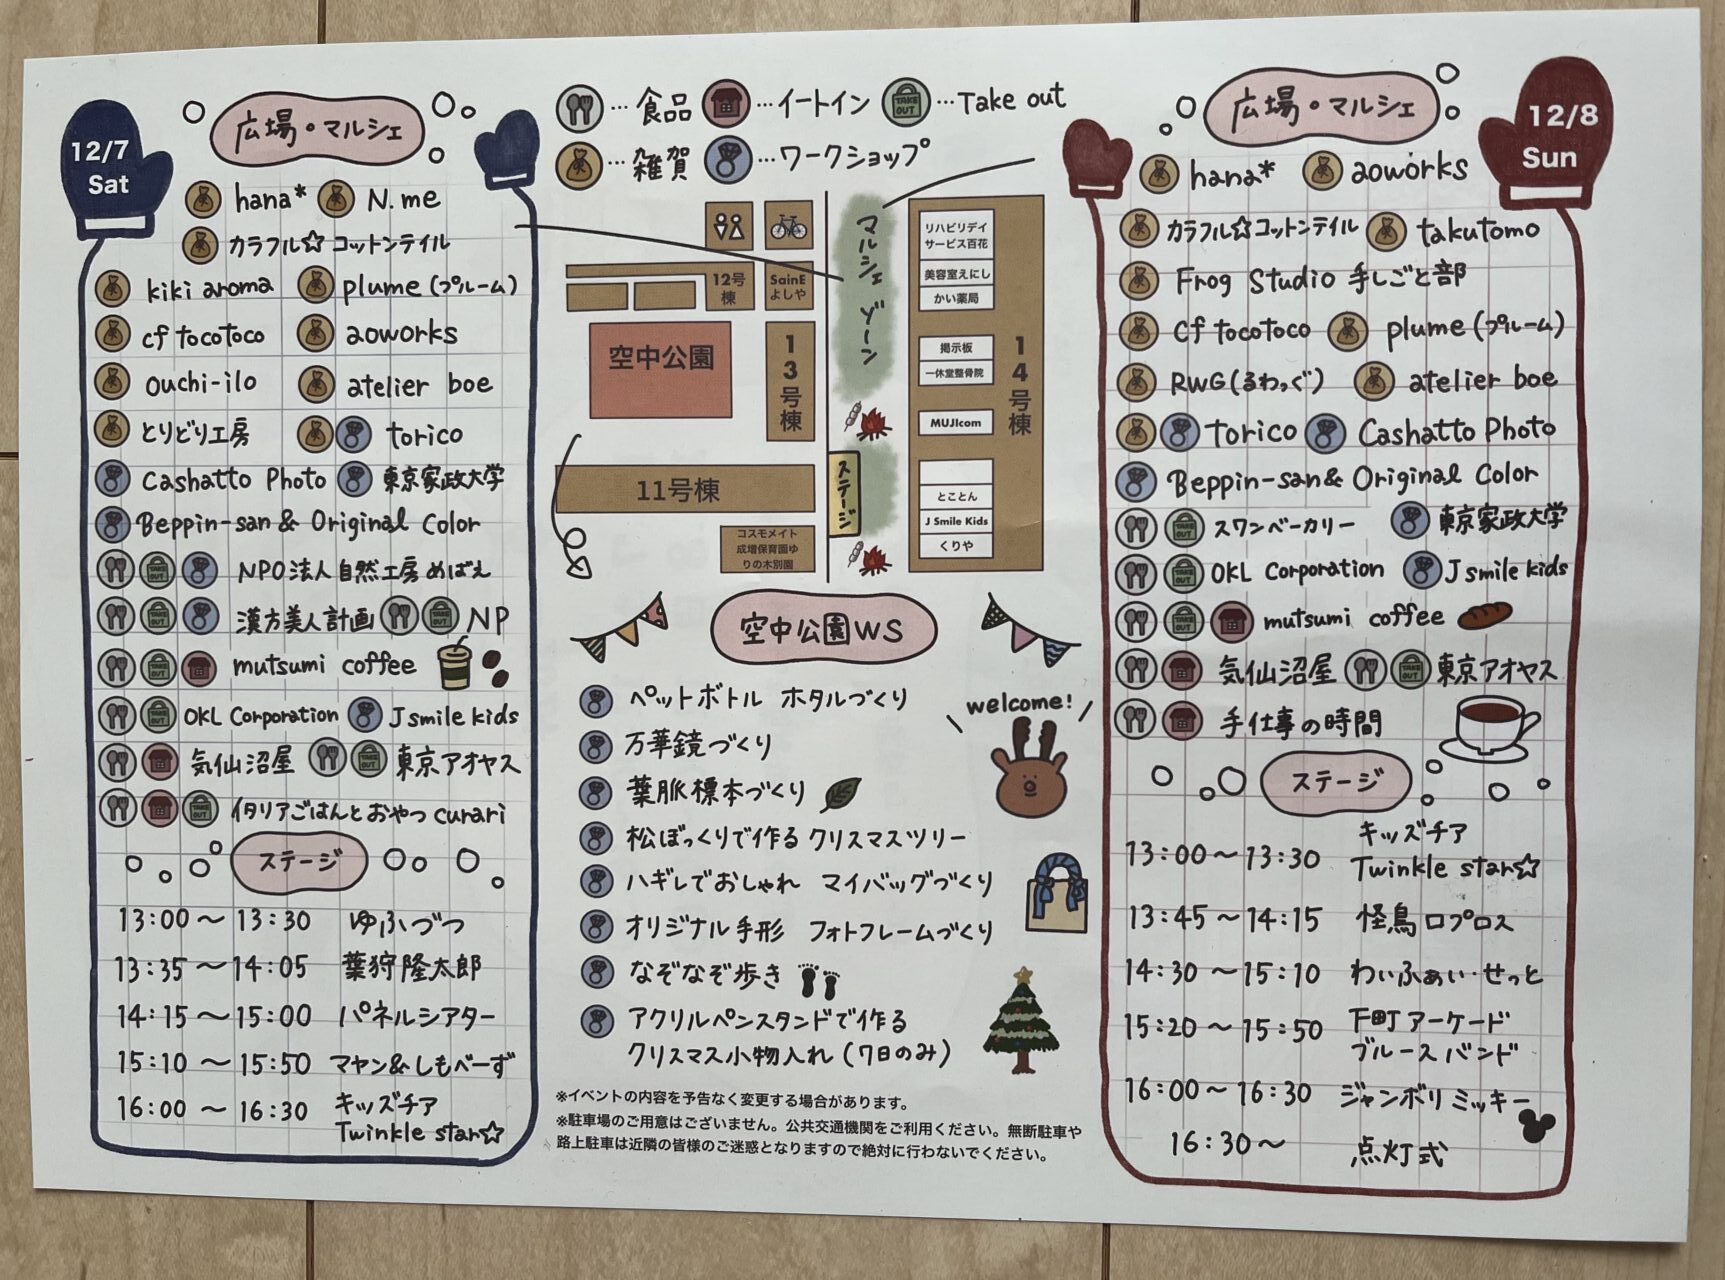 12/7
Sat
広場・マルシェ
hana* N.me
カラフル☆コットンテイル
kiki aroma plume(プルーム)
cf tocotoco aoworks
ouchi-ilo atelier boe
とりどり工房 torico
Cashatto Photo 東京家政大学
Beppin-san & Original Color
TAKE OUT NPO法人自然工房めばえ
TAKE OUT 漢方美人計画 TAKE OUT NP
TAKE OUT mutsumi coffee
TAKE OUT OKL Corporation J smile kids
気仙沼屋 TAKE OUT 東京アオヤス
TAKE OUT イタリアごはんとおやつ curari
ステージ
13:00〜13:30 ゆふづつ
13:35〜14:05 葉狩隆太郎
14:15〜15:00 パネルシアター
15:10〜15:50 マヤン&しもべーず
16:00〜16:30 キッズチア
Twinkle star☆
…食品 …イートイン TAKE OUT …Take out
…雑貨 …ワークショップ
マルシェゾーン
12号棟
SainE
よしや
空中公園
13号棟
11号棟
ステージ
コスモメイト
成増保育園ゆ
りの木別園
14号棟
リハビリデイ
サービス百花
美容室えにし
かい薬局
掲示板
一休堂整骨院
MUJIcom
とことん
J Smile Kids
くりや
空中公園WS
welcome!
ペットボトル ホタルづくり
万華鏡づくり
葉脈標本づくり
松ぼっくりで作るクリスマスツリー
ハギレでおしゃれ マイバッグづくり
オリジナル手形 フォトフレームづくり
なぞなぞ歩き
アクリルペンスタンドで作る
クリスマス小物入れ(7日のみ)
※イベントの内容を予告なく変更する場合があります。
※駐車場のご用意はございません。公共交通機関をご利用ください。無断駐車や
路上駐車は近隣の皆様のご迷惑となりますので絶対に行わないでください。
12/8
Sun
広場・マルシェ
hana* aoworks
カラフル☆コットンテイル takutomo
Frog Studio 手しごと部
cf tocotoco plume(プルーム)
RWG(るわっぐ) atelier boe
torico Cashatto Photo
Beppin-san & Original Color
TAKE OUT スワンベーカリー 東京家政大学
TAKE OUT OKL Corporation J smile kids
TAKE OUT mutsumi coffee
気仙沼屋 TAKE OUT 東京アオヤス
手仕事の時間
ステージ
13:00〜13:30 キッズチア
Twinkle star☆
13:45〜14:15 怪鳥ロプロス
14:30〜15:10 わぃふぁぃ・せっと
15:20〜15:50 下町アーケード
ブルースバンド
16:00〜16:30 ジャンボリミッキー
16:30〜 点灯式